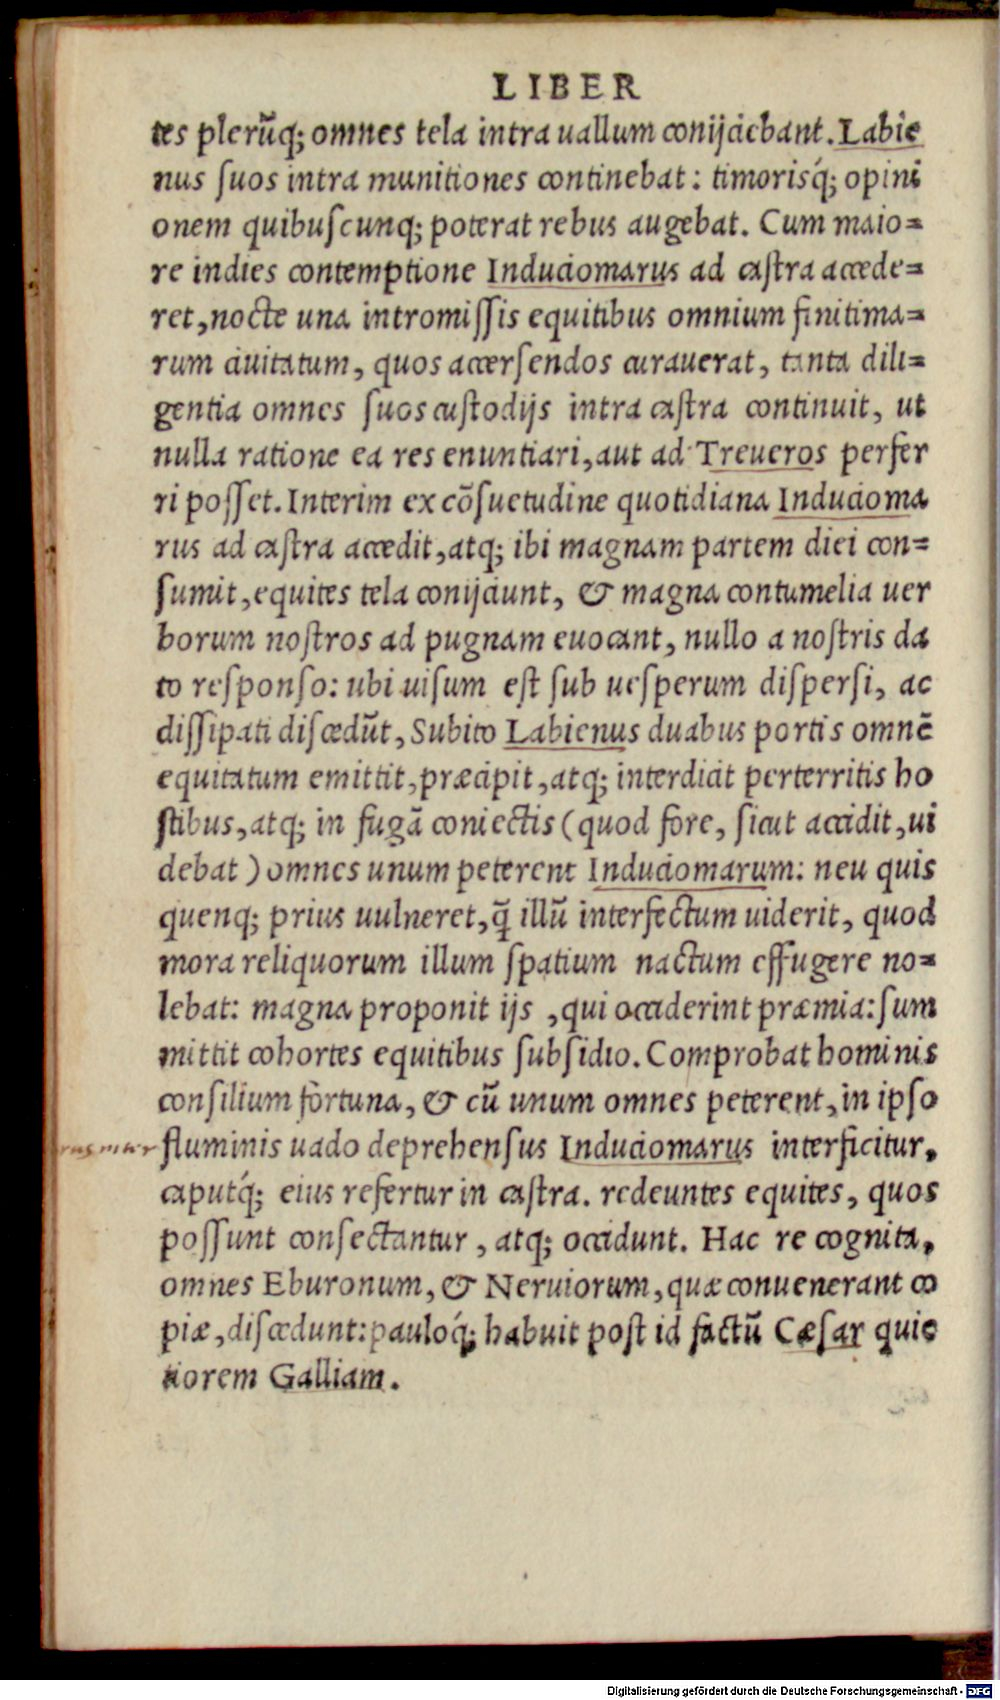 LIBER
tes plerūq; omnes tela intra uallum conijciebant. Labie
nus suos intra munitiones continebat: timorisq́; opini
onem quibuscunq; poterat rebus augebat. Cum maio=
re indies contemptione Induciomarus ad castra accede=
ret, nocte una intromissis equitibus omnium finitima=
rum ciuitatum, quos accersendos curauerat, tanta dili=
gentia omnes suos custodijs intra castra continuit, ut
nulla ratione ea res enuntiari, aut ad Treueros perfer
ri posset. Interim ex cōsuetudine quotidiana Inducioma
rus ad castra accedit, atq; ibi magnam partem diei con=
sumit, equites tela conijciunt, & magna contumelia uer
borum nostros ad pugnam euocant, nullo a nostris da
to responso: ubi uisum est sub uesperum dispersi, ac
dissipati discedūt, Subito Labienus duabus portis omnē
equitatum emittit, præcipit, atq; interdicit perterritis ho
stibus, atq; in fugā coniectis (quod fore, sicut accidit, ui
debat) omnes unum peterent Induciomarum: neu quis
quenq; prius uulneret, q̄ illū interfectum uiderit, quod
mora reliquorum illum spatium nactum effugere no=
lebat: magna proponit ijs, qui occiderint præmia: sum
mittit cohortes equitibus subsidio. Comprobat hominis
consilium fortuna, & cū unum omnes peterent, in ipso
fluminis uado deprehensus Induciomarus interficitur,
caputq́; eius refertur in castra. redeuntes equites, quos
possunt consectantur, atq; occidunt. Hac re cognita,
omnes Eburonum, & Neruiorum, quæ conuenerant co
piæ, discedunt: pauloq́; habuit post id factū Cæsar quie
tiorem Galliam.
Digitalisierung gefördert durch die Deutsche Forschungsgemeinschaft - DFG